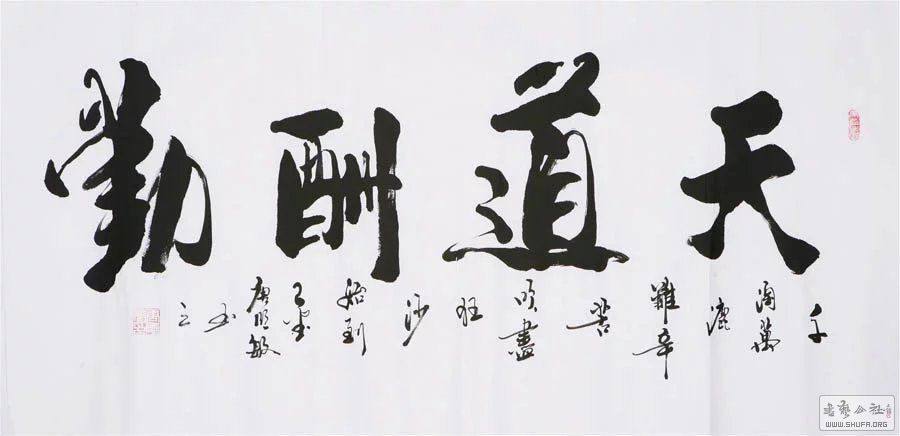 天道酬勤
千
淘萬
漉
雖辛
苦
吹盡
狂
沙
始到
唐明敏
书艺公社
WWW.SHUFA.ORG